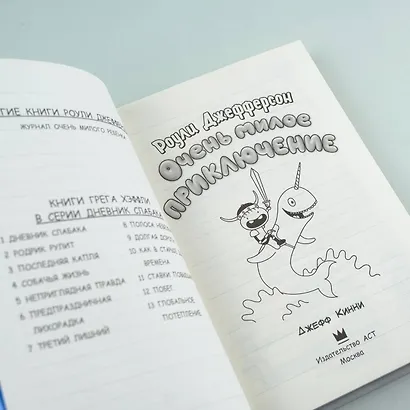 ГИЕ КНИГИ РОУЛИ ДЖЕФФЕ
ЖУРНАЛ ОЧЕНЬ МИЛОГО РЕБЁНКА
КНИГИ ГРЕГА ХЭФЛИ
В СЕРИИ ДНЕВНИК СЛАБАКА
1 ДНЕВНИК СЛАБАКА
2 РОДРИК РУЛИТ
3 ПОСЛЕДНЯЯ КАПЛЯ
4 СОБАЧЬЯ ЖИЗНЬ
5 НЕПРИГЛЯДНАЯ ПРАВДА
6 ПРЕДПРАЗДНИЧНАЯ
ЛИХОРАДКА
7 ТРЕТИЙ ЛИШНИЙ
8 ПОЛОСА
9 ДОЛГАЯ ДОРО
10 КАК В СТАР
ВРЕМЕНА
11 СТАВКИ ПОВЫШ
12 ПОБЕГ
13 ГЛОБАЛЬНОЕ
ПОТЕПЛЕНИЕ
РОУЛИ ДЖЕФФЕРСОН
ОЧЕНЬ МИЛОЕ
ПРИКЛЮЧЕНИЕ
ДЖЕФФ КИННИ
Издательство АСТ
Москва